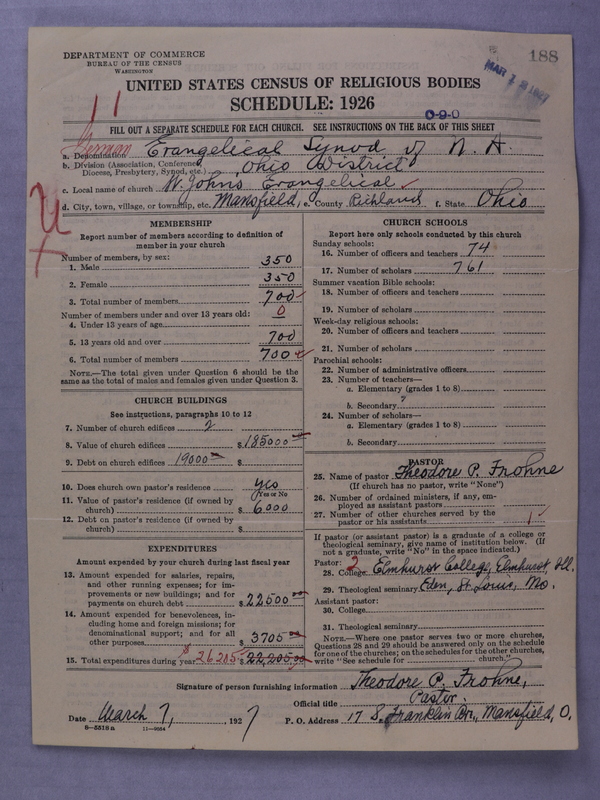 188
DEPARTMENT OF COMMERCE
BUREAU OF THE CENSUS
WASHINGTON
MAR 12 1927
UNITED STATES CENSUS OF RELIGIOUS BODIES
SCHEDULE: 1926
11
0-9-0
FILL OUT A SEPARATE SCHEDULE FOR EACH CHURCH. SEE INSTRUCTIONS ON THE BACK OF THIS SHEET
German
a. Denomination Evangelical Synod of N. A.
b. Division (Association, Conference, Diocese, Presbytery, Synod, etc.) Ohio District
c. Local name of church St. Johns Evangelical
d. City, town, village, or township, etc. Mansfield, e. County Richland f. State Ohio
MEMBERSHIP
Report number of members according to definition of
member in your church
Number of members, by sex:
1. Male 350
2. Female 350
3. Total number of members 700
Number of members under and over 13 years old:
4. Under 13 years of age 0
5. 13 years old and over 700
6. Total number of members 700
NOTE.—The total given under Question 6 should be
same as the total of males and females given under Question 3.
CHURCH BUILDINGS
See instructions, paragraphs 10 to 12
7. Number of church edifices 2
8. Value of church edifices $ 185000
9. Debt on church edifices 19000 $
10. Does church own pastor's residence yes
(Yes or No)
11. Value of pastor's residence (if owned by
church) $ 6000
12. Debt on pastor's residence (if owned by
church) $
EXPENDITURES
Amount expended by your church during last fiscal year
13. Amount expended for salaries, repairs,
and other running expenses; for im-
provements or new buildings; and for
payments on church debt $ 22500
14. Amount expended for benevolences, in-
cluding home and foreign missions; for
denominational support; and for all
other purposes $ 3705
15. Total expenditures during year $ 26205 $ 22,205.00
CHURCH SCHOOLS
Report here only schools conducted by this church
Sunday schools:
16. Number of officers and teachers 74
17. Number of scholars 761
Summer vacation Bible schools:
18. Number of officers and teachers
19. Number of scholars
Week-day religious schools:
20. Number of officers and teachers
21. Number of scholars
Parochial schools:
22. Number of administrative officers
23. Number of teachers—
a. Elementary (grades 1 to 8)
b. Secondary
24. Number of scholars—
a. Elementary (grades 1 to 8)
b. Secondary
PASTOR
25. Name of pastor Theodore P. Frohne
(If church has no pastor, write "None")
26. Number of ordained ministers, if any, em-
ployed as assistant pastors
27. Number of other churches served by the
pastor or his assistants 1
If pastor (or assistant pastor) is a graduate of a college or
theological seminary, give name of institution below. (If
not a graduate, write "No" in the space indicated.)
Pastor: 2
28. College Elmhurst College, Elmhurst Ill.
29. Theological seminary Eden, St. Louis, Mo.
Assistant pastor:
30. College
31. Theological seminary
NOTE.—Where one pastor serves two or more churches,
Questions 28 and 29 should be answered only on the schedule
for one of the churches; on the schedules for the other churches,
write "See schedule for church."
Signature of person furnishing information Theodore P. Frohne,
Official title Pastor.
Date March 7, 1927 P. O. Address 17 S. Franklin Av., Mansfield, O.
8—5318a 11—9034